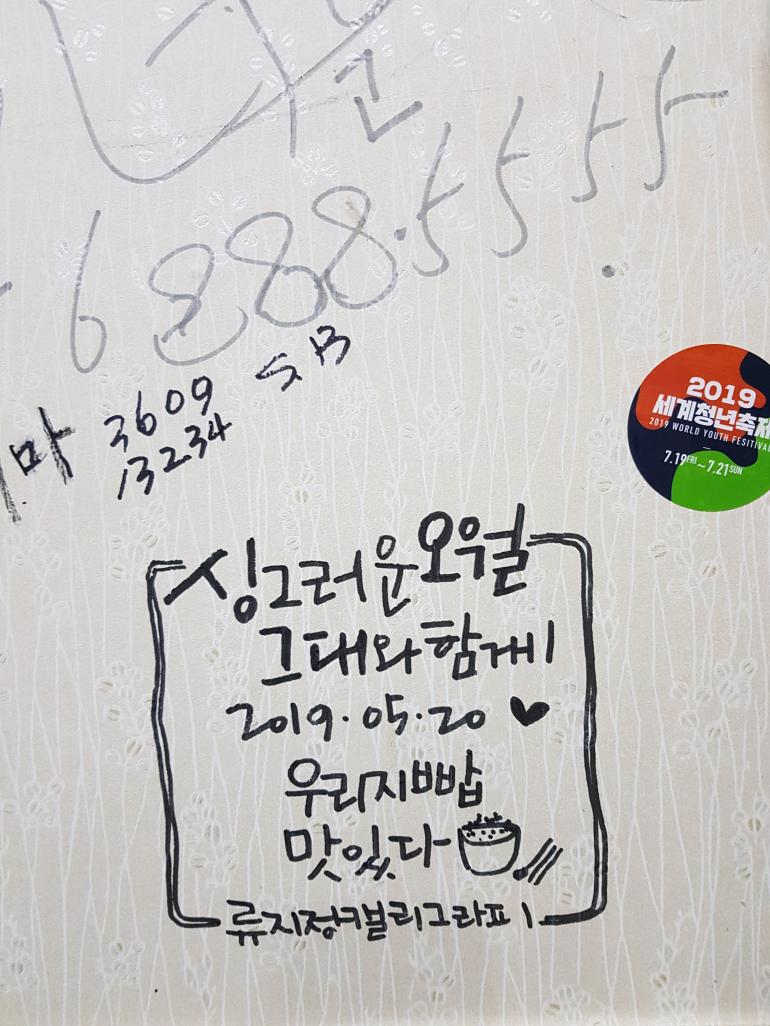 고
6888.5555
마 3609 SB
13234
2019
세계청년축제
2019 WORLD YOUTH FESITIVAL
7.19FRI~7.21SUN
싱그러운오월
그대와함께
2019.05.20
우리지빠밥
맛있다
류지정캘리그라피